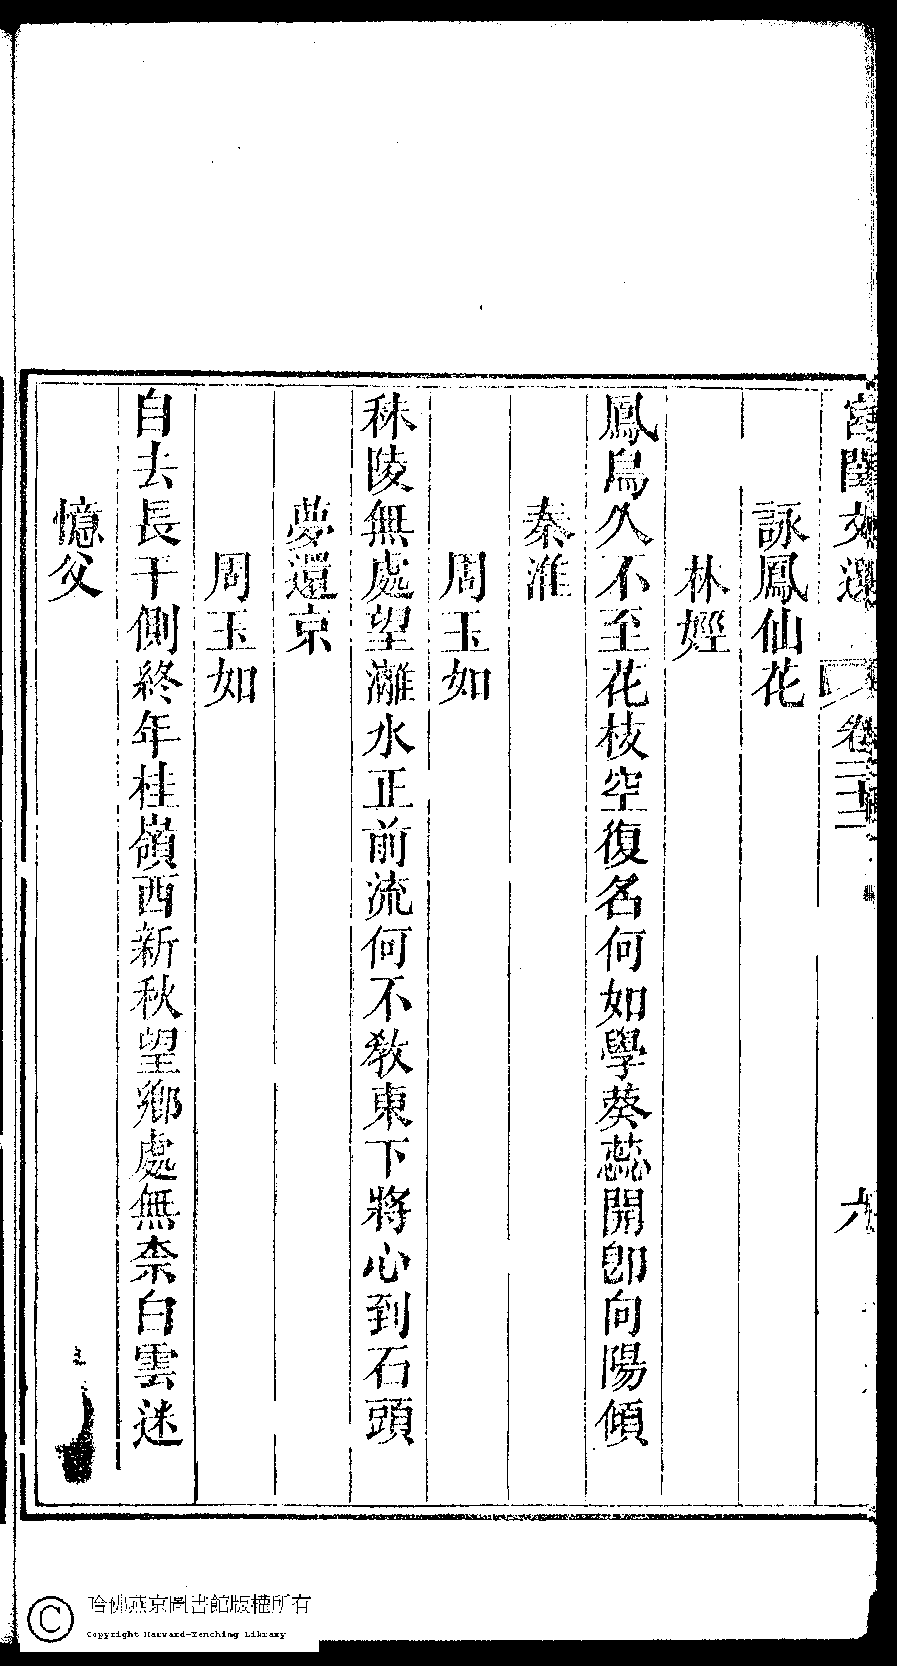 宮閨文選 卷二十二 六
詠鳳仙花
林娙
鳳鳥久不至花枝空復名何如學葵蕊開卽向陽傾
秦淮
周玉如
秣陵無處望灕水正前流何不敎東下將心到石頭
夢還京
周玉如
自去長干側終年桂嶺西新秋望鄉處無柰白雲迷
憶父
哈佛燕京圖書館版權所有
Copyright Harvard-Yenching Library